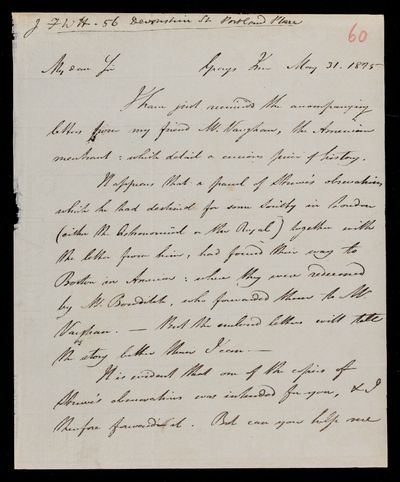 J F W H - 56 Devonshire St. Portland Place
60
My dear Sir Grays Inn May 31. 1825
I have just received the accompanying
letters from my friend Mr. Vaughan, the American
merchant: which detail a curious piece of history.
It appears that a parcel of Struve's observations
which he had destined for some Society in London
(either the Astronomical or the Royal) together with
the letter from him, had found their way to
Boston in America: where they were received
by Mr. Bowditch, who forwarded them to Mr
Vaughan. — But the enclosed letters will tell
the story better than I can. —
It is evident that one of the copies of
Struve's observations was intended for you, & I
therefore forward it. But can you help me